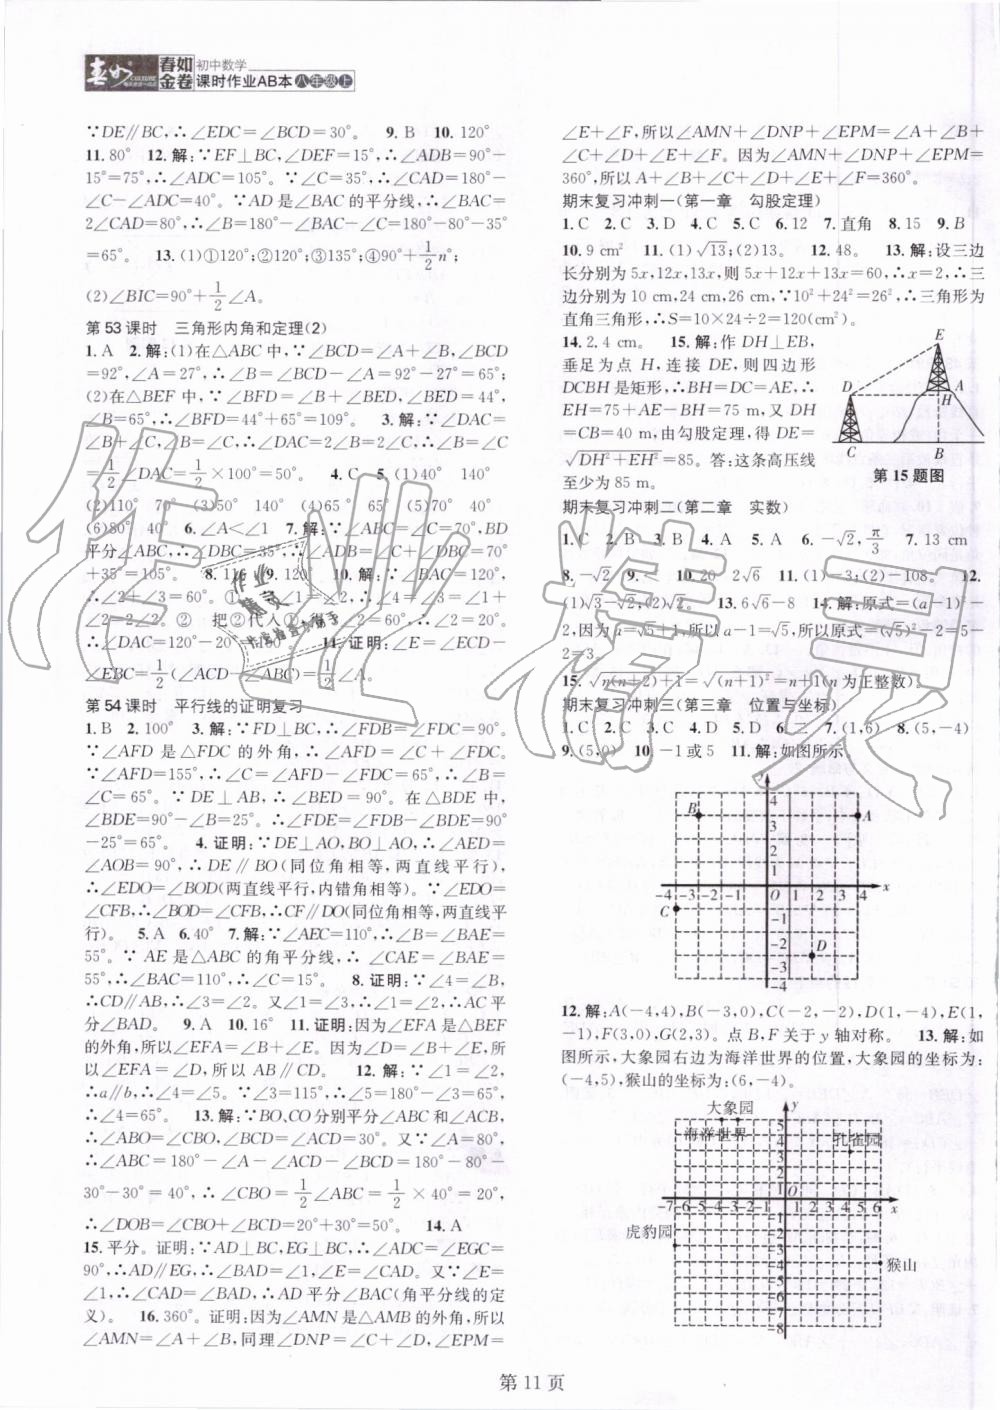 春如
金卷
初中数学
课时作业AB本 八年级上
∵DE∥BC,∴∠EDC=∠BCD=30°。 9.B 10.120°
11.80° 12.解:∵EF⊥BC,∠DEF=15°,∴∠ADB=90°-
15°=75°,∴∠ADC=105°。∵∠C=35°,∴∠CAD=180°-
∠C-∠ADC=40°。∵AD是∠BAC的平分线,∴∠BAC=
2∠CAD=80°,∴∠B=180°-∠BAC-∠C=180°-80°-35°
=65°。 13.(1)①120°;②120°;③135°;④90°+1/2 n°;
(2)∠BIC=90°+1/2∠A。
第53课时 三角形内角和定理(2)
1.A 2.解:(1)在△ABC中,∵∠BCD=∠A+∠B,∠BCD
=92°,∠A=27°,∴∠B=∠BCD-∠A=92°-27°=65°;
(2)在△BEF中,∵∠BFD=∠B+∠BED,∠BED=44°,
∠B=65°,∴∠BFD=44°+65°=109°。 3.解:∵∠DAC=
∠B+∠C,∠B=∠C,∴∠DAC=2∠B=2∠C,∴∠B=∠C
=1/2∠DAC=1/2×100°=50°。 4.C 5.(1)40° 140°
(2)110° 70° (3)50° 140° (4)65° 65° (5)70° 40°
(6)80° 40° 6.∠A<∠1 7.解:∵∠ABC=∠C=70°,BD
平分∠ABC,∴∠DBC=35°,∴∠ADB=∠C+∠DBC=70°
+35°=105°。 8.116 9.120° 10.解:∵∠BAC=120°,
∴∠2+∠3=60°。① ∠1=∠2,∴∠4=∠3=∠1+
∠2=2∠2。② 把②代入①,得3∠2=60°,∴∠2=20°。
∴∠DAC=120°-20°=100°。 11.证明:∠E=∠ECD-
∠EBC=1/2(∠ACD-∠ABC)=1/2∠A。
第54课时 平行线的证明复习
1.B 2.100° 3.解:∵FD⊥BC,∴∠FDB=∠FDC=90°。
∵∠AFD是△FDC的外角,∴∠AFD=∠C+∠FDC。
∵∠AFD=155°,∴∠C=∠AFD-∠FDC=65°,∴∠B=
∠C=65°。∵DE⊥AB,∴∠BED=90°。在△BDE中,
∠BDE=90°-∠B=25°。∴∠FDE=∠FDB-∠BDE=90°
-25°=65°。 4.证明:∵DE⊥AO,BO⊥AO,∴∠AED=
∠AOB=90°,∴DE∥BO(同位角相等,两直线平行),
∴∠EDO=∠BOD(两直线平行,内错角相等)。∵∠EDO=
∠CFB,∴∠BOD=∠CFB,∴CF∥DO(同位角相等,两直线平
行)。 5.A 6.40° 7.解:∵∠AEC=110°,∴∠B=∠BAE=
55°。∵AE是△ABC的角平分线,∴∠CAE=∠BAE=
55°,∴∠BAC=110°,∴∠C=15°。 8.证明:∵∠4=∠B,
∴CD∥AB,∴∠3=∠2。又∠1=∠3,∴∠1=∠2,∴AC平
分∠BAD。 9.A 10.16° 11.证明:因为∠EFA是△BEF
的外角,所以∠EFA=∠B+∠E。又因为∠A=∠B+∠E,所
以∠EFA=∠D,所以AB∥CD。 12.解:∵∠1=∠2,
∴a∥b,∴∠4=∠5。∵∠3=115°,∴∠5=180°-∠3=65°,
∴∠4=65°。 13.解:∵BO,CO分别平分∠ABC和∠ACB,
∴∠ABO=∠CBO,∠BCD=∠ACD=30°。又∵∠A=80°,
∴∠ABC=180°-∠A-∠ACD-∠BCD=180°-80°-
30°-30°=40°,∴∠CBO=1/2∠ABC=1/2×40°=20°,
∴∠DOB=∠CBO+∠BCD=20°+30°=50°。 14.A
15.平分。证明:∵AD⊥BC,EG⊥BC,∴∠ADC=∠EGC=
90°,∴AD∥EG,∴∠BAD=∠1,∠E=∠CAD。又∵∠E=
∠1,∴∠CAD=∠BAD,∴AD平分∠BAC(角平分线的定
义)。 16.360°。证明:因为∠AMN是△AMB的外角,所以
∠AMN=∠A+∠B,同理∠DNP=∠C+∠D,∠EPM=
∠E+∠F,所以∠AMN+∠DNP+∠EPM=∠A+∠B+
∠C+∠D+∠E+∠F。因为∠AMN+∠DNP+∠EPM=
360°,所以∠A+∠B+∠C+∠D+∠E+∠F=360°。
期末复习冲刺一(第一章 勾股定理)
1.C 2.C 3.D 4.C 5.C 6.12 7.直角 8.15 9.B
10.9 cm² 11.(1)√13;(2)13。 12.48。 13.解:设三边
长分别为5x,12x,13x,则5x+12x+13x=60,∴x=2,∴三
边分别为10 cm,24 cm,26 cm,∵10²+24²=26²,∴三角形为
直角三角形,∴S=10×24÷2=120(cm²)。
14.2.4 cm。 15.解:作DH⊥EB,
垂足为点H,连接DE,则四边形
DCBH是矩形,∴BH=DC=AE,∴
EH=75+AE-BH=75 m,又DH
=CB=40 m,由勾股定理,得DE=
√DH²+EH²=85。答:这条高压线
至少为85 m。
E
D
H
A
C
B
第15题图
期末复习冲刺二(第二章 实数)
1.C 2.B 3.B 4.A 5.A 6.-√2,π/3 7.13 cm
8.-√2 9.< 10.20 2√6 11.(1)-3;(2)-108。 12.
(1)√3-√2;(2)√2。 13.6√6-8 14.解:原式=(a-1)²-
2,因为a=√5+1,所以a-1=√5,所以原式=(√5)²-2=5-
2=3。
15.√n(n+2)+1=√(n+1)²=n+1(n为正整数)。
期末复习冲刺三(第三章 位置与坐标)
1.C 2.C 3.C 4.D 5.D 6.三 7.(1,6) 8.(5,-4)
9.(5,0) 10.-1或5 11.解:如图所示
y
4
B
A
3
2
1
-4 -3 -2 -1 O 1 2 3 4 x
C
-1
-2
D
-3
-4
12.解:A(-4,4),B(-3,0),C(-2,-2),D(1,-4),E(1,
-1),F(3,0),G(2,3)。点B,F关于y轴对称。 13.解:如
图所示,大象园右边为海洋世界的位置,大象园的坐标为:
(-4,5),猴山的坐标为:(6,-4)。
大象园
y
海洋世界
孔雀园
5
4
3
2
1
O
-7 -6 -5 -4 -3 -2 -1 1 2 3 4 5 6 x
虎豹园
-1
-2
-3
-4
猴山
-5
-6
-7
-8
第11页